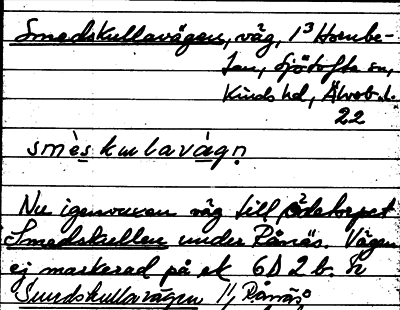 Smedskullavägen, väg, 1³ Hornbe-
Sjötofta sn,
Kinds hd, Älvsb.l.
22
smèskulavàgn
Nu igenvuxen väg till ödetorpet
Smedskullen under Rånäs. Vägen
ej markerad på ek 6D 2b. Se
Smedskullavägen 1, Rånäs